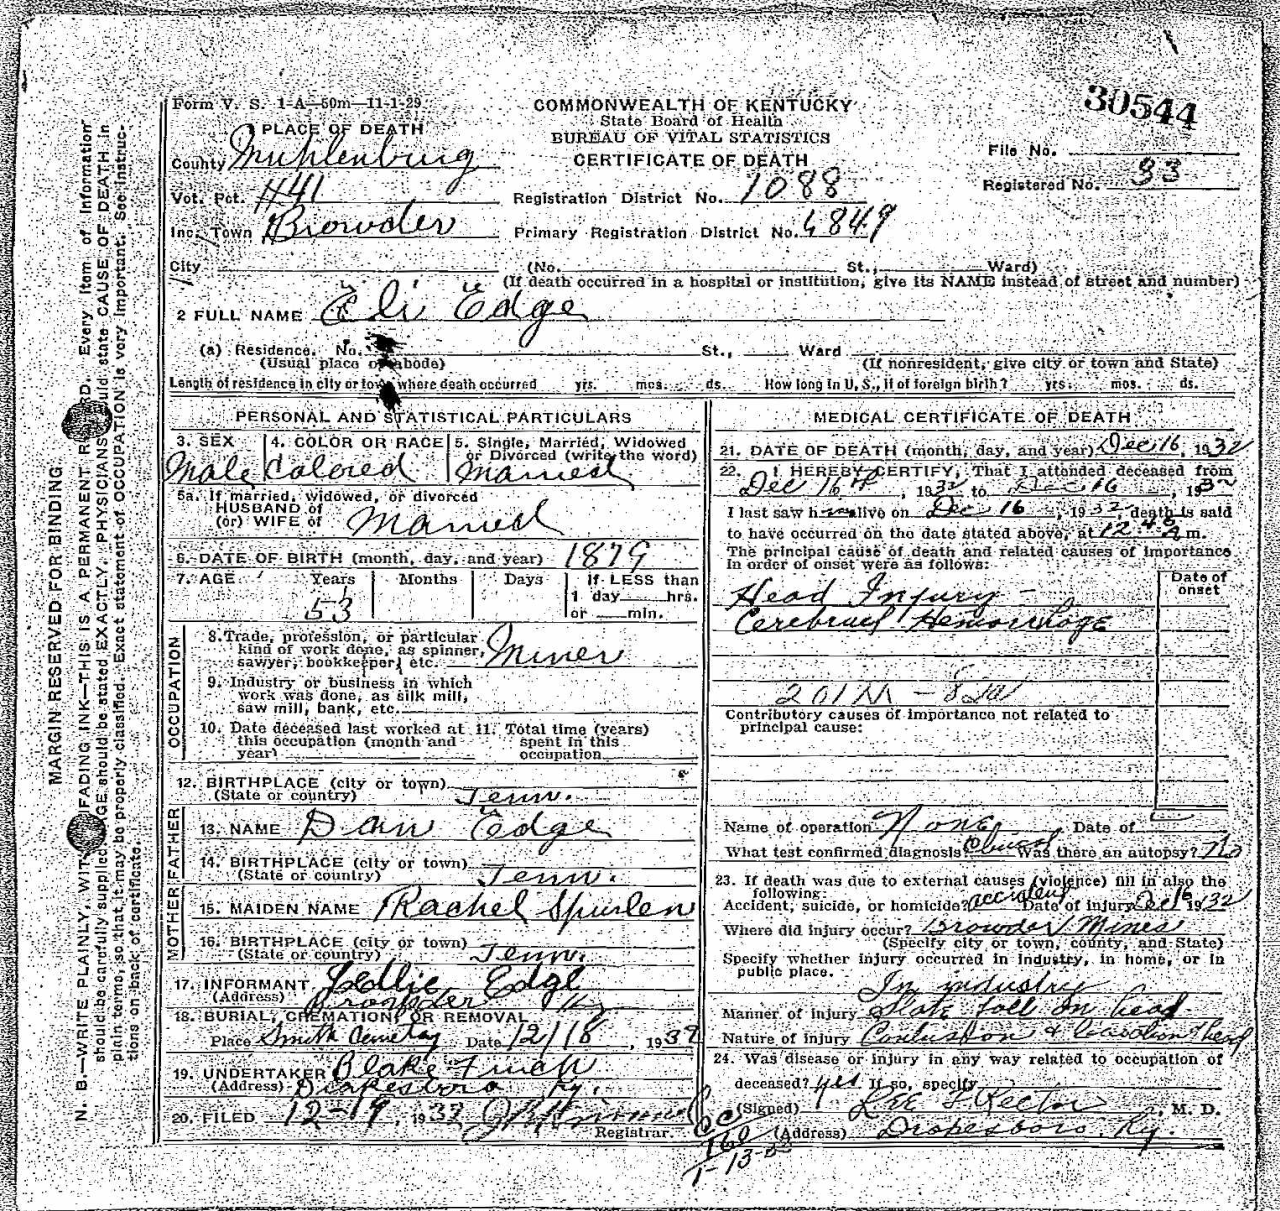 Form V. S. 1-A—50m—11-1-29
COMMONWEALTH OF KENTUCKY
State Board of Health
BUREAU OF VITAL STATISTICS
CERTIFICATE OF DEATH
30544
File No.
Registered No. 83
PLACE OF DEATH
County Muhlenburg
Vot. Pct. #41 Registration District No. 1088
Inc. Town Browder Primary Registration District No. 4849
City (No. St., Ward)
(If death occurred in a hospital or institution, give its NAME instead of street and number)
2 FULL NAME Eli Edge
(a) Residence. No. St., Ward
(Usual place of abode) (If nonresident, give city or town and State)
Length of residence in city or town where death occurred yrs. mos. ds. How long in U. S., if of foreign birth? yrs. mos. ds.
PERSONAL AND STATISTICAL PARTICULARS
3. SEX 4. COLOR OR RACE 5. Single, Married, Widowed
or Divorced (write the word)
Male Colored Married
5a. If married, widowed, or divorced
HUSBAND of
(or) WIFE of Married
6. DATE OF BIRTH (month, day, and year) 1879
7. AGE Years Months Days If LESS than
1 day hrs.
53 or min.
OCCUPATION
8. Trade, profession, or particular
kind of work done, as spinner,
sawyer, bookkeeper, etc. Miner
9. Industry or business in which
work was done, as silk mill,
saw mill, bank, etc.
10. Date deceased last worked at 11. Total time (years)
this occupation (month and spent in this
year) occupation
12. BIRTHPLACE (city or town)
(State or country) Tenn.
FATHER
13. NAME Dan Edge
14. BIRTHPLACE (city or town)
(State or country) Tenn.
MOTHER
15. MAIDEN NAME Rachel Spurlen
16. BIRTHPLACE (city or town)
(State or country) Tenn.
17. INFORMANT Lollie Edge
(Address) Browder Ky
18. BURIAL, CREMATION OR REMOVAL
Place Smith Cemetery Date 12/18, 1932
19. UNDERTAKER Blake
(Address) Drakesboro Ky.
20. FILED 12-19, 1932
Registrar.
MEDICAL CERTIFICATE OF DEATH
21. DATE OF DEATH (month, day, and year) Dec 16, 1932
22. I HEREBY CERTIFY, That I attended deceased from
Dec 16th, 1932 to Dec 16, 1932
I last saw him alive on Dec 16, 1932, death is said
to have occurred on the date stated above, at 12:45 a m.
The principal cause of death and related causes of importance
in order of onset were as follows:
Date of
onset
Head Injury -
Cerebral Hemorrhage
201M -
Contributory causes of importance not related to
principal cause:
Name of operation None Date of
What test confirmed diagnosis? Clinical Was there an autopsy? No
23. If death was due to external causes (violence) fill in also the
following:
Accident, suicide, or homicide? accident Date of injury Dec 16 1932
Where did injury occur? Browder Mines
(Specify city or town, county, and State)
Specify whether injury occurred in industry, in home, or in
public place.
In industry
Manner of injury Slate fall on head
Nature of injury Contusion & Head
24. Was disease or injury in any way related to occupation of
deceased? Yes If so, specify
(Signed) Lee S Rector, M. D.
(Address) Drakesboro Ky.
160
MARGIN RESERVED FOR BINDING
N. B.—WRITE PLAINLY, WITH UNFADING INK—THIS IS A PERMANENT RECORD. Every item of information
should be carefully supplied. AGE should be stated EXACTLY. PHYSICIANS should state CAUSE OF DEATH in
plain terms, so that it may be properly classified. Exact statement of OCCUPATION is very important. See instruc-
tions on back of certificate.